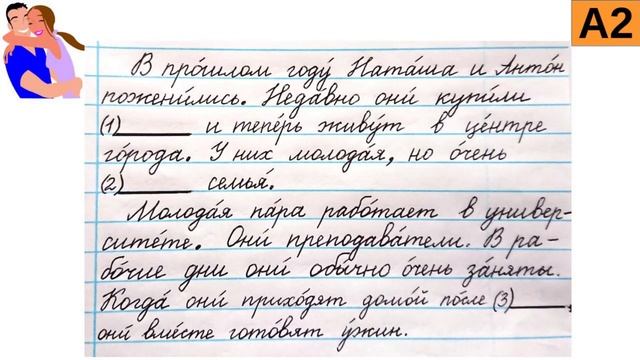 A2
В про́шлом году́ Ната́ша и Анто́н
пожени́лись. Неда́вно они́ купи́ли
(1)______ и тепе́рь живу́т в це́нтре
го́рода. У них молода́я, но о́чень
(2)______ семья́.
Молода́я па́ра рабо́тает в универ-
сите́те. Они́ преподава́тели. В ра-
бо́чие дни они́ обы́чно о́чень за́няты.
Когда́ они́ прихо́дят домо́й по́сле (3)______,
они́ вме́сте гото́вят у́жин.